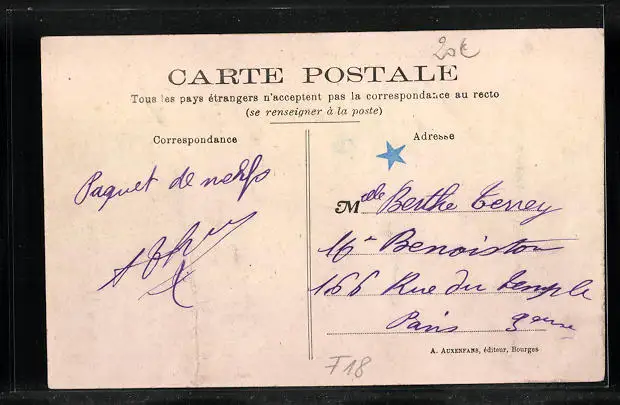 20€
CARTE POSTALE
Tous les pays étrangers n'acceptent pas la correspondance au recto
(se renseigner à la poste)
Correspondance
Adresse
Paquet de nerfs
Melle Berthe Terrey
Mon Benoiston
166 Rue du Temple
Paris 3eme
A. AUXENFANS, éditeur, Bourges
F18